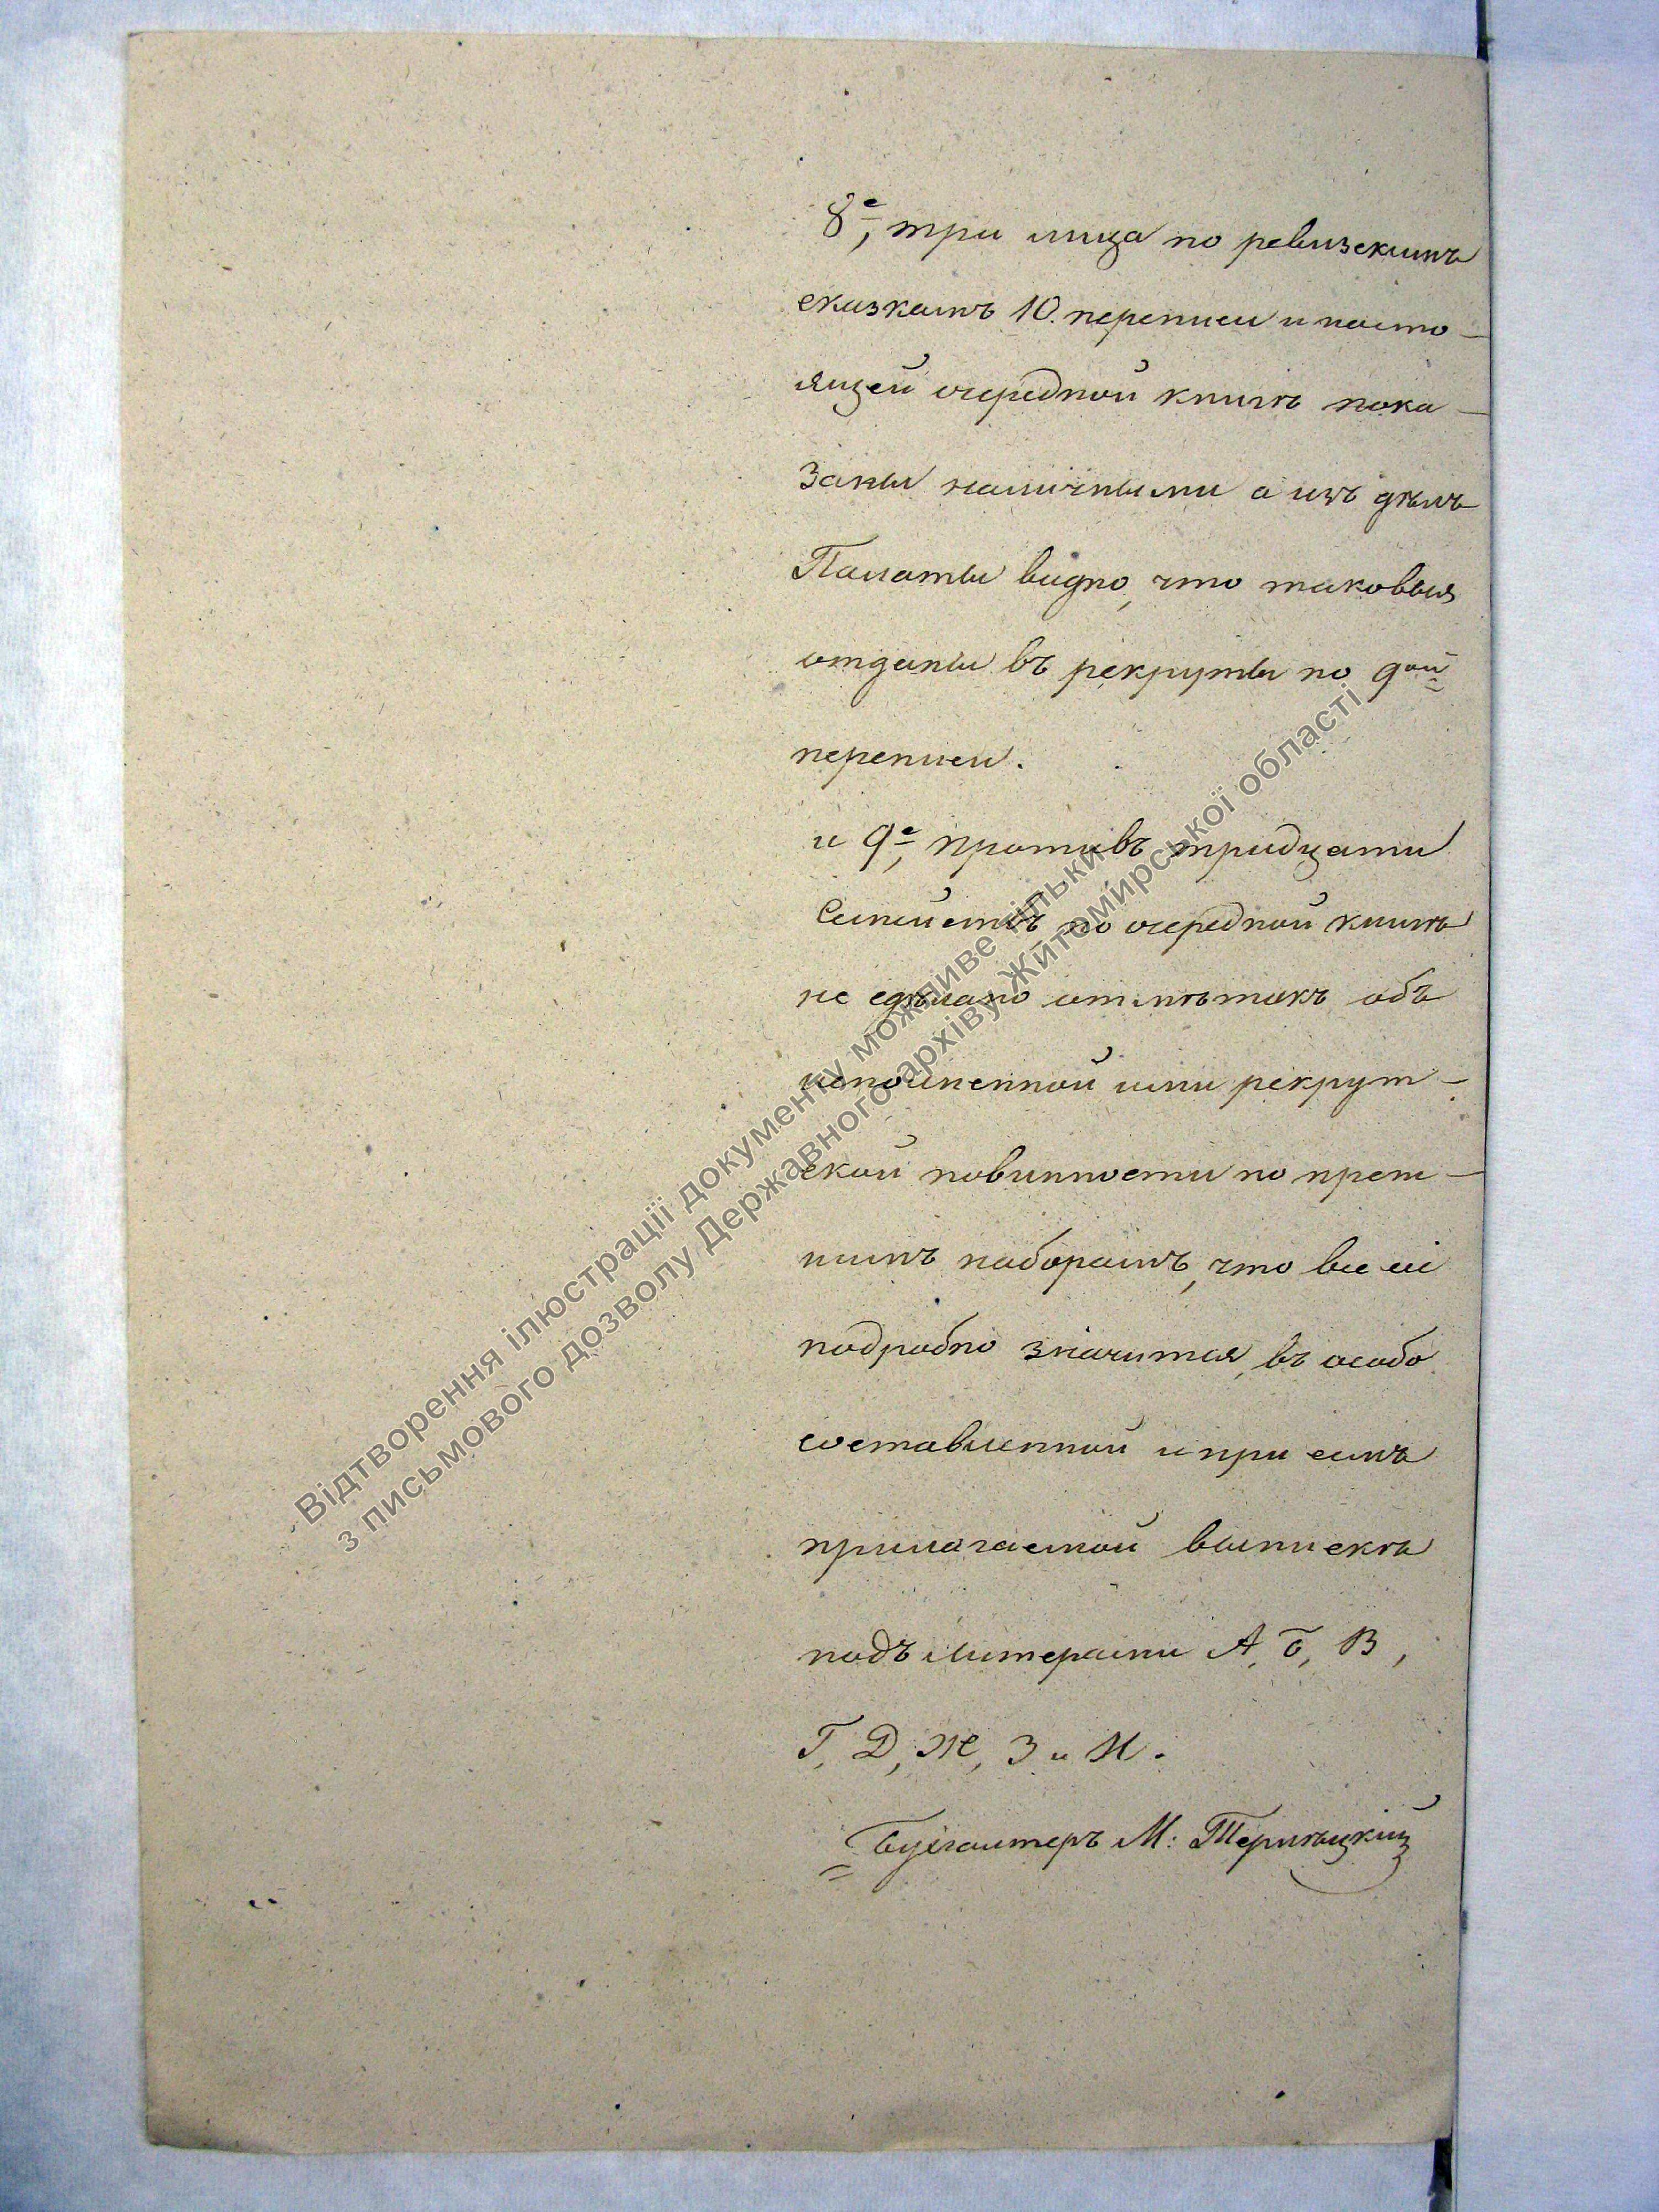 8е, три лица по ревизскимъ
сказкамъ 10. переписи и насто-
ящей очередной книгѣ пока-
заны наличными а изъ дѣлъ
Палаты видно, что таковыя
отданы въ рекруты по 9ой
переписи.
и 9е, противъ тридцати
Семействъ по очередной книгѣ
не сдѣлано отмѣтокъ объ
исполненной ими рекрут-
ской повинности по преж-
нимъ наборамъ, что все сіе
подробно значится, въ особо
составленной и при семъ
прилагаемой выпискѣ
подъ литерами А, Б, В,
Г, Д, Ж, З и И.
Бухгалтеръ М:
Відтворення ілюстрації документу можливе тільки
з письмового дозволу Державного архіву Житомирської області